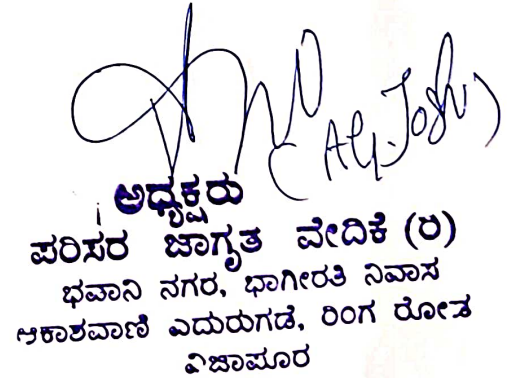 (A.G. Joshi)
ಅಧ್ಯಕ್ಷರು
ಪರಿಸರ ಜಾಗೃತ ವೇದಿಕೆ (ರ)
ಭವಾನಿ ನಗರ, ಭಾಗೀರತಿ ನಿವಾಸ
ಆಕಾಶವಾಣಿ ಎದುರುಗಡೆ, ರಿಂಗ ರೋಡ
ವಿಜಾಪೂರ